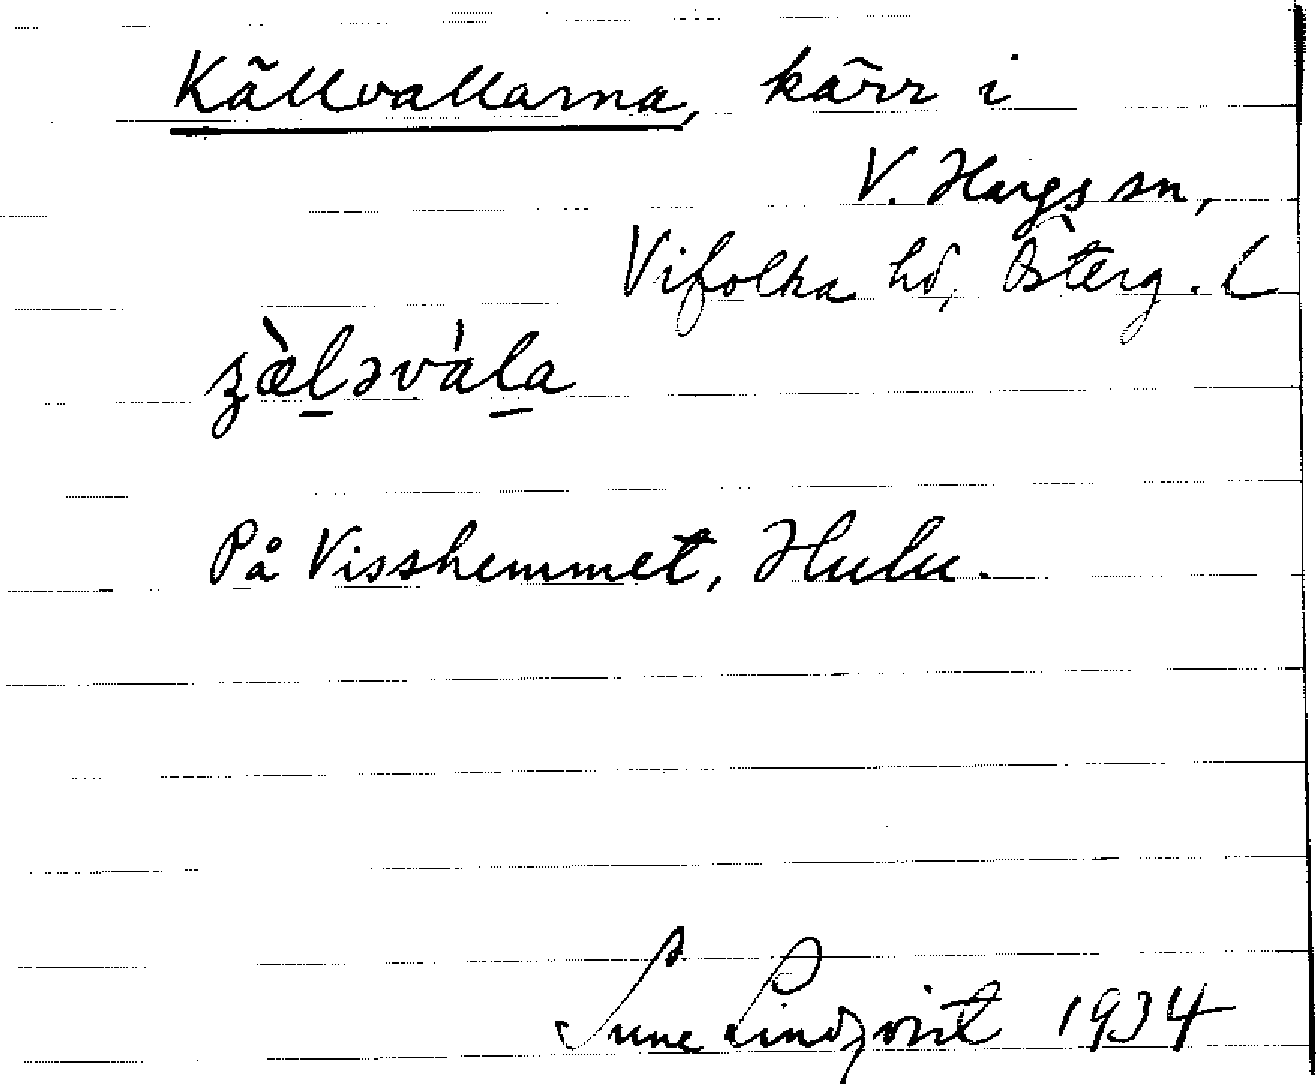 Källvallarna, kärr i
V. Hargs sn,
Vifolka hd, Österg. L
ʒæ̀l̠əvàl̠a
På Visshemmet, Hulu.
Sune Lindqvist 1934